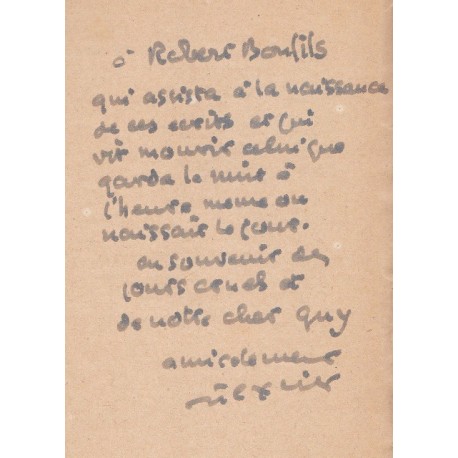 à Robert Bonfils
qui assista à la naissance
de ces ecrits et qui
vit mourir celui que
garda la nuit à
l'heure meme ou
naissait le jour.
en souvenir des
jours cruels et
de notre cher guy
amicalement